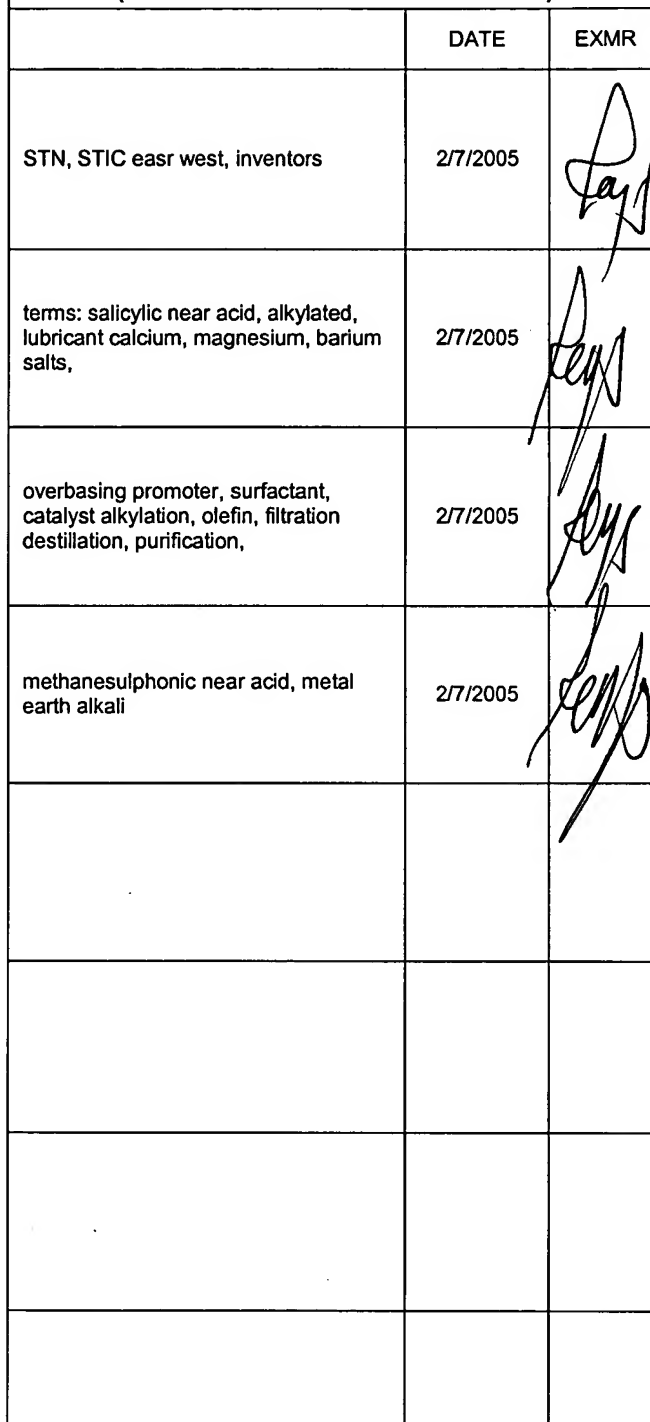 DATE EXMR
STN, STIC easr west, inventors 2/7/2005
terms: salicylic near acid, alkylated,
lubricant calcium, magnesium, barium 2/7/2005
salts,
overbasing promoter, surfactant,
catalyst alkylation, olefin, filtration 2/7/2005
destillation, purification,
methanesulphonic near acid, metal 2/7/2005
earth alkali